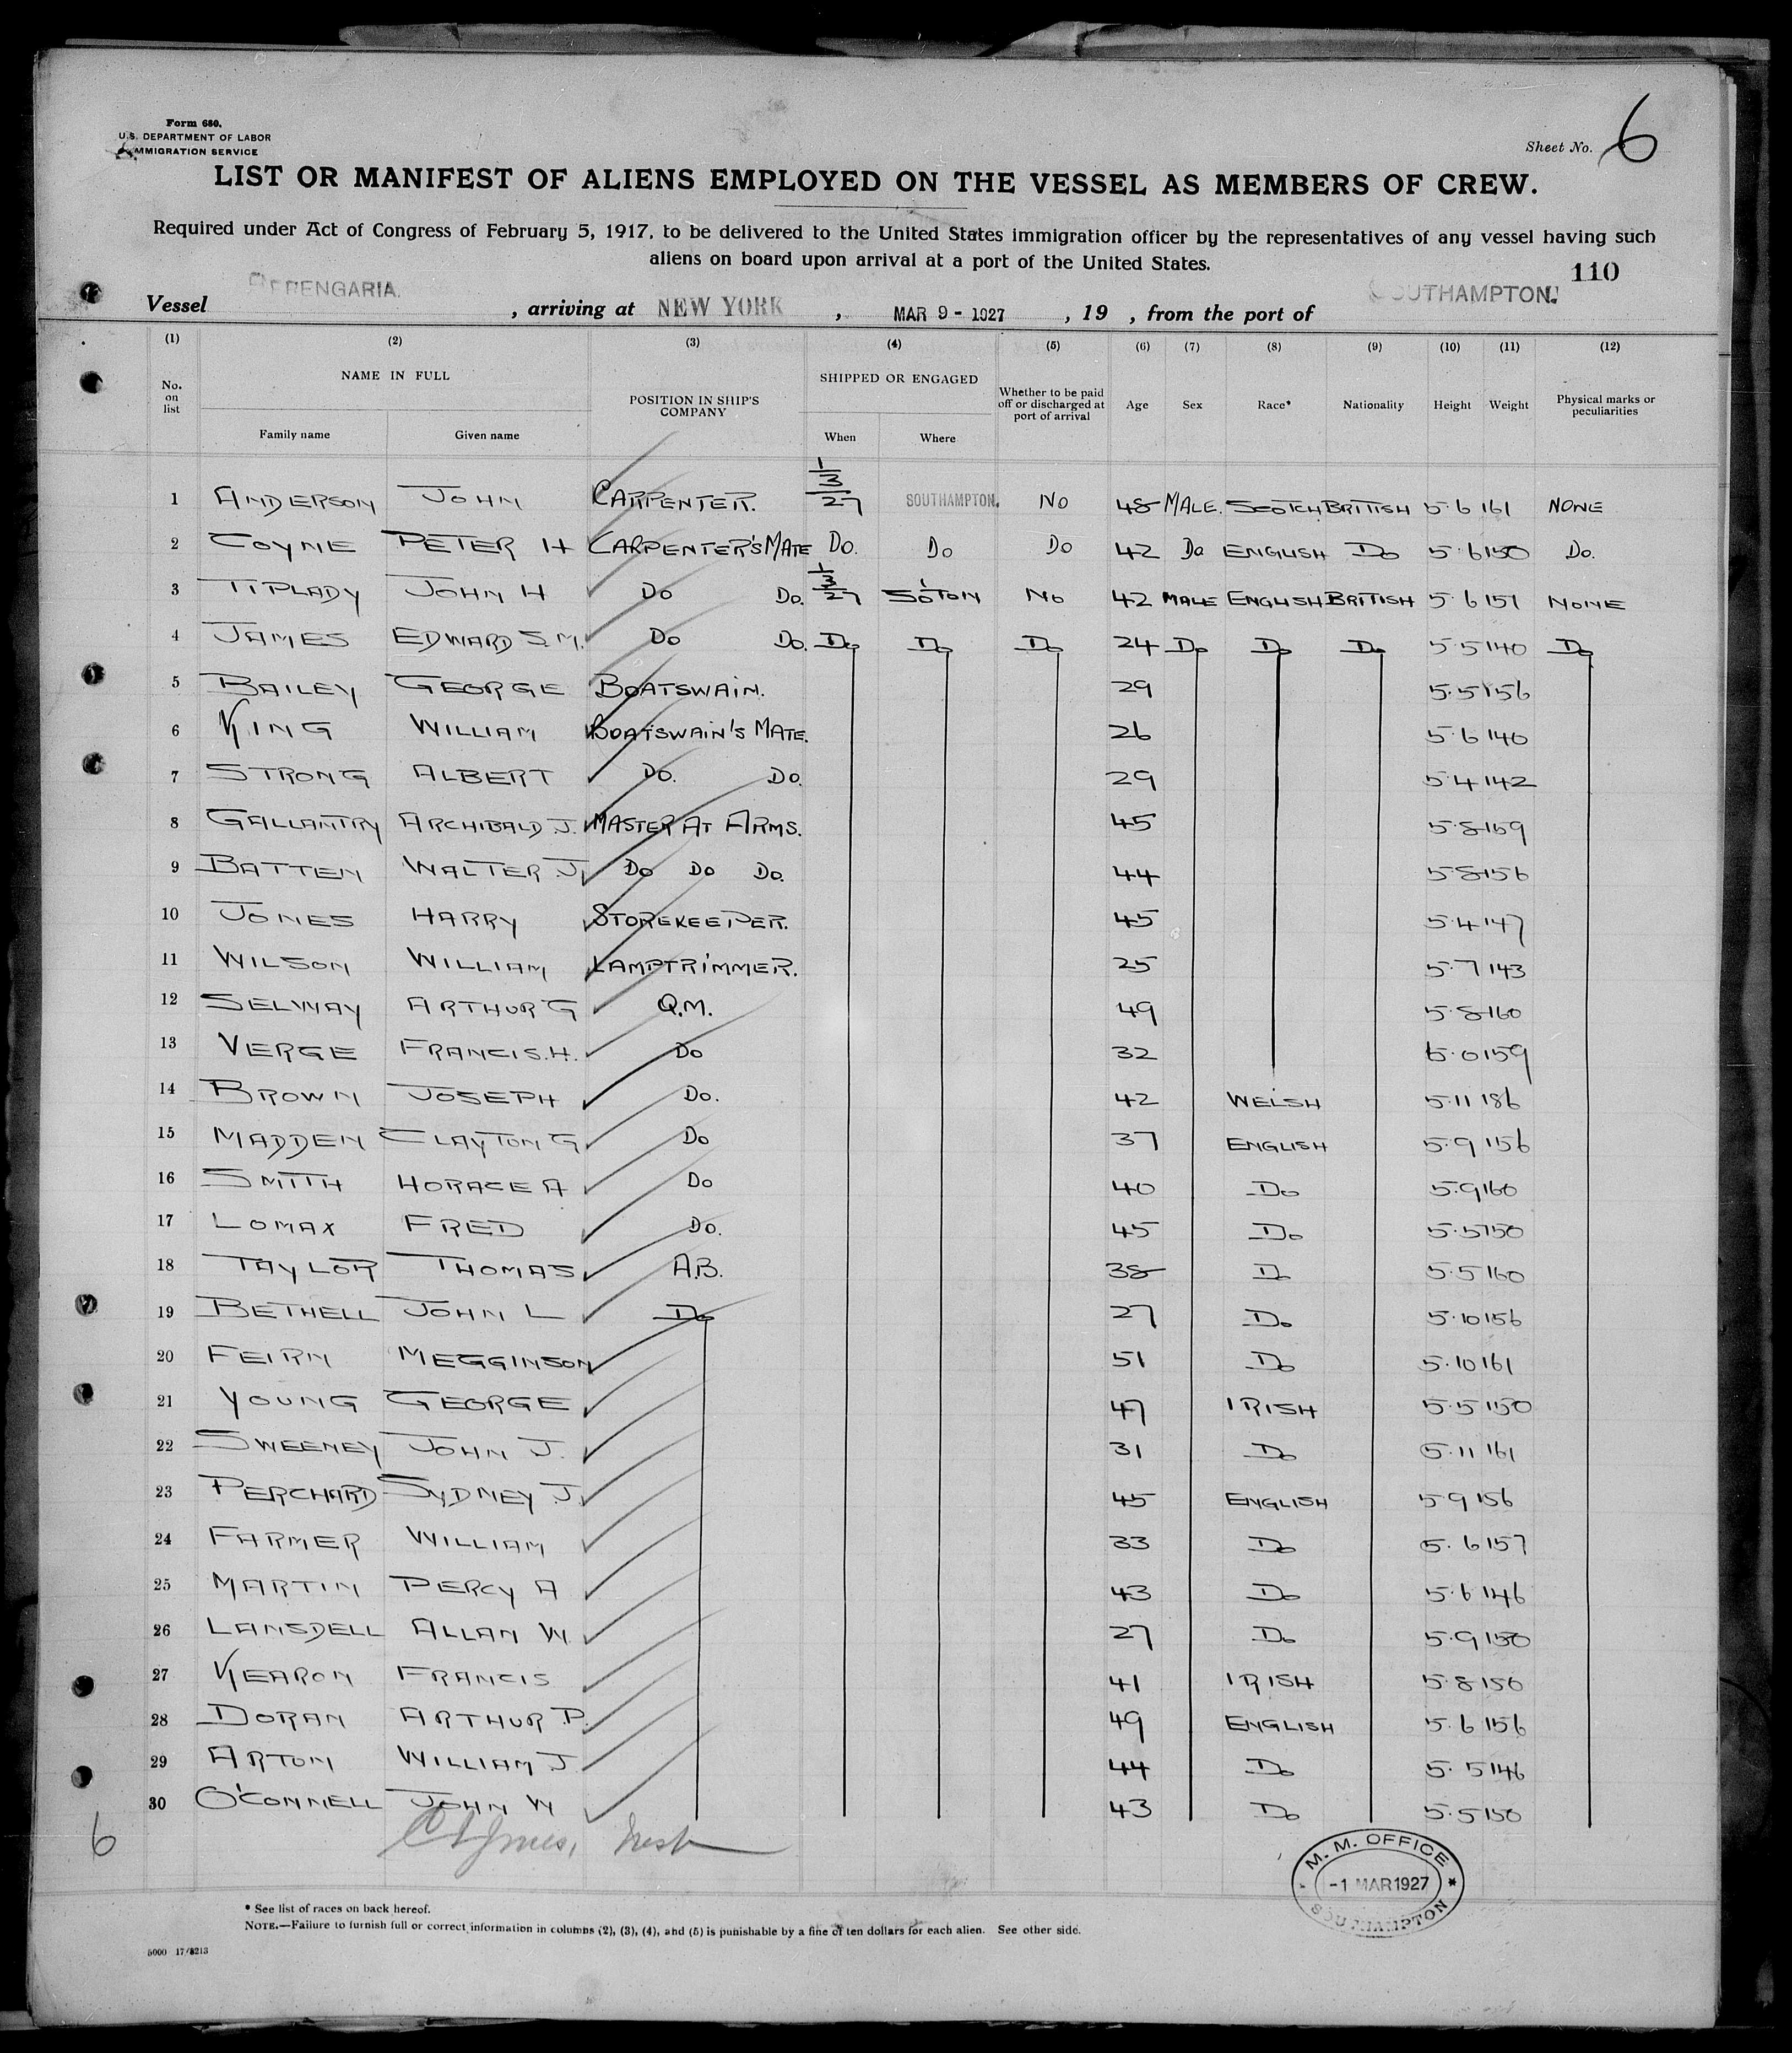 Form 680.
U.S. DEPARTMENT OF LABOR
IMMIGRATION SERVICE
Sheet No. 6
LIST OR MANIFEST OF ALIENS EMPLOYED ON THE VESSEL AS MEMBERS OF CREW.
Required under Act of Congress of February 5, 1917, to be delivered to the United States immigration officer by the representatives of any vessel having such
aliens on board upon arrival at a port of the United States.
110
Vessel BERENGARIA, arriving at NEW YORK, MAR 9 - 1927, 19 , from the port of SOUTHAMPTON.
(1) (2) (3) (4) (5) (6) (7) (8) (9) (10) (11) (12)
No. on list NAME IN FULL Family name Given name POSITION IN SHIP'S COMPANY SHIPPED OR ENGAGED When Where Whether to be paid off or discharged at port of arrival Age Sex Race* Nationality Height Weight Physical marks or peculiarities
1 ANDERSON JOHN CARPENTER. 1/3/27 SOUTHAMPTON. NO 48 MALE. SCOTCH BRITISH 5.6 161 NONE
2 COYNE PETER H CARPENTER'S MATE DO. DO DO 42 DO ENGLISH DO 5.6 150 DO.
3 TIPLADY JOHN H DO DO. 1/3/27 SO'TON NO 42 MALE ENGLISH BRITISH 5.6 151 NONE
4 JAMES EDWARD S.M. DO DO. DO DO DO 24 DO DO DO 5.5 140 DO
5 BAILEY GEORGE BOATSWAIN. 29 5.5 156
6 KING WILLIAM BOATSWAIN'S MATE. 26 5.6 140
7 STRONG ALBERT DO. DO. 29 5.4 142
8 GALLANTRY ARCHIBALD J. MASTER AT ARMS. 45 5.8 159
9 BATTEN WALTER J. DO DO DO. 44 5.8 156
10 JONES HARRY STOREKEEPER. 45 5.4 147
11 WILSON WILLIAM LAMPTRIMMER. 25 5.7 143
12 SELWAY ARTHUR G Q.M. 49 5.8 160
13 VERGE FRANCIS.H. DO 32 6.0 159
14 BROWN JOSEPH DO. 42 WELSH 5.11 186
15 MADDEN CLAYTON G DO 37 ENGLISH 5.9 156
16 SMITH HORACE A DO 40 DO 5.9 160
17 LOMAX FRED DO. 45 DO 5.5 150
18 TAYLOR THOMAS A.B. 38 DO 5.5 160
19 BETHELL JOHN L DO 27 DO 5.10 156
20 FEIRN MEGGINSON 51 DO 5.10 161
21 YOUNG GEORGE 47 IRISH 5.5 150
22 SWEENEY JOHN J. 31 DO 5.11 161
23 PERCHARD SYDNEY J. 45 ENGLISH 5.9 156
24 FARMER WILLIAM 33 DO 5.6 157
25 MARTIN PERCY A 43 DO 5.6 146
26 LANSDELL ALLAN W. 27 DO 5.9 150
27 KEARON FRANCIS 41 IRISH 5.8 156
28 DORAN ARTHUR P. 49 ENGLISH 5.6 156
29 ARTON WILLIAM J. 44 DO 5.5 146
30 O'CONNELL JOHN W 43 DO 5.5 150
6
M. M. OFFICE
-1 MAR 1927
SOUTHAMPTON
* See list of races on back hereof.
NOTE.—Failure to furnish full or correct information in columns (2), (3), (4), and (5) is punishable by a fine of ten dollars for each alien. See other side.
5000 17/8213